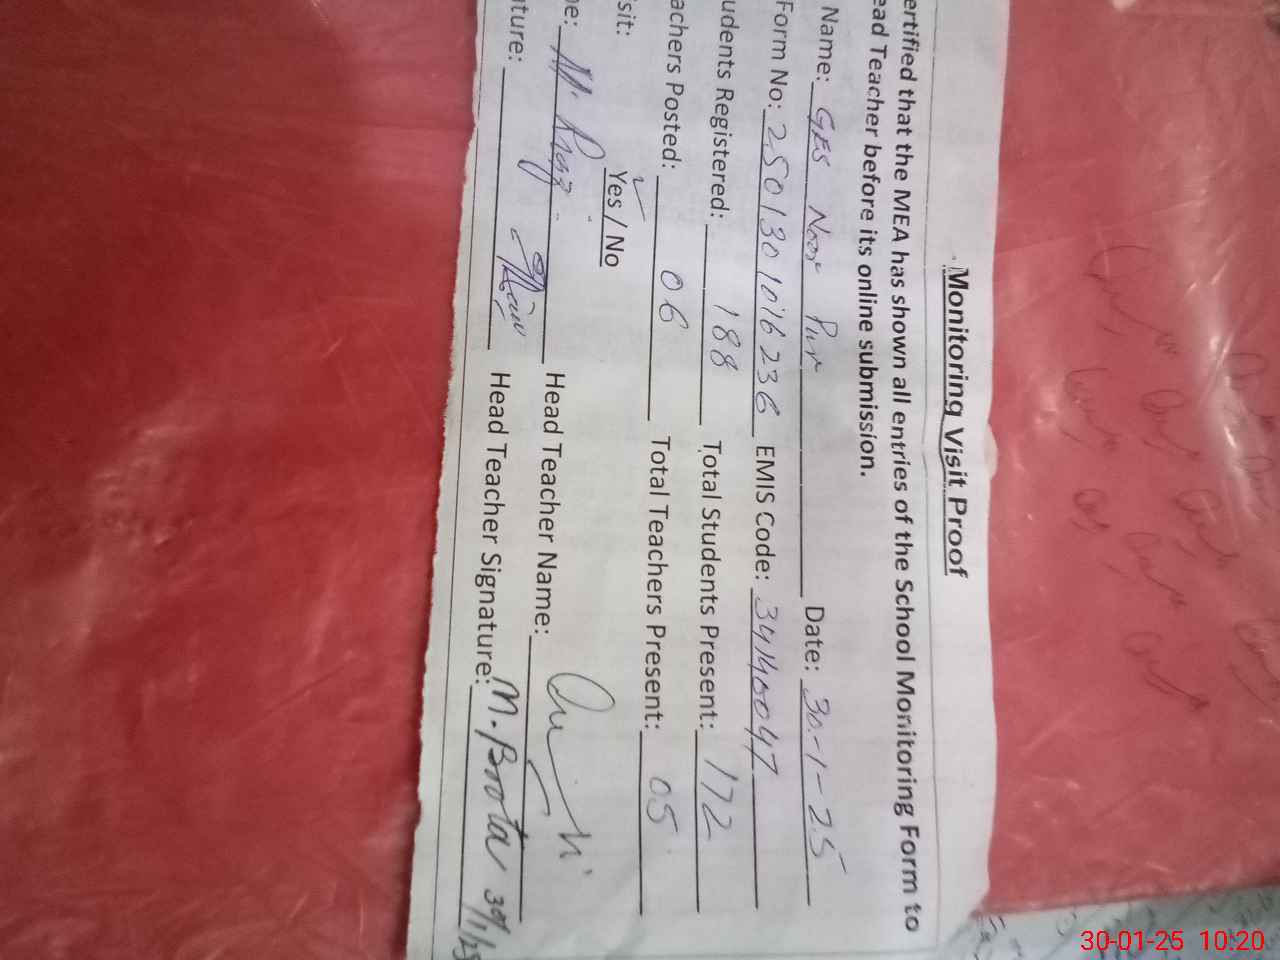 Monitoring Visit Proof
ertified that the MEA has shown all entries of the School Monitoring Form to
ead Teacher before its online submission.
Name: GES Noor Pur Date: 30-1-25
Form No: 2501301016236 EMIS Code: 34140047
udents Registered: 188 Total Students Present: 172
achers Posted: 06 Total Teachers Present: 05
sit: Yes / No
e: M. Head Teacher Name:
ture: Head Teacher Signature: M. Boota 30/1/25
30-01-25 10:20